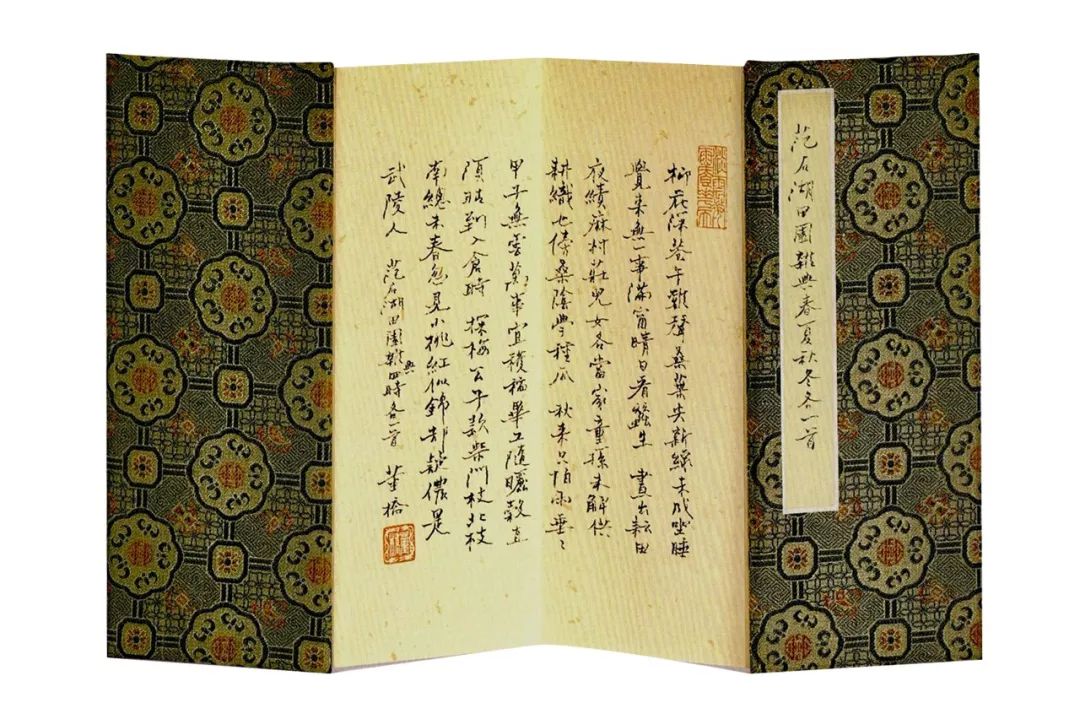 范石湖田園雜興春夏秋冬各一首
柳花深巷午雞聲桑葉尖新綠未成坐睡
覺來無一事滿窗晴日看蠶生 晝出耘田
夜績麻村莊兒女各當家童孫未解供
耕織也傍桑陰學種瓜 秋來只怕雨垂々
甲子無雲萬事宜穫稻畢工隨曬穀直
須晴到入倉時 探梅公子款柴門枝北枝
南總未春忽見小桃紅似錦却疑儂是
武陵人 范石湖田園雜興四時各一首 董橋